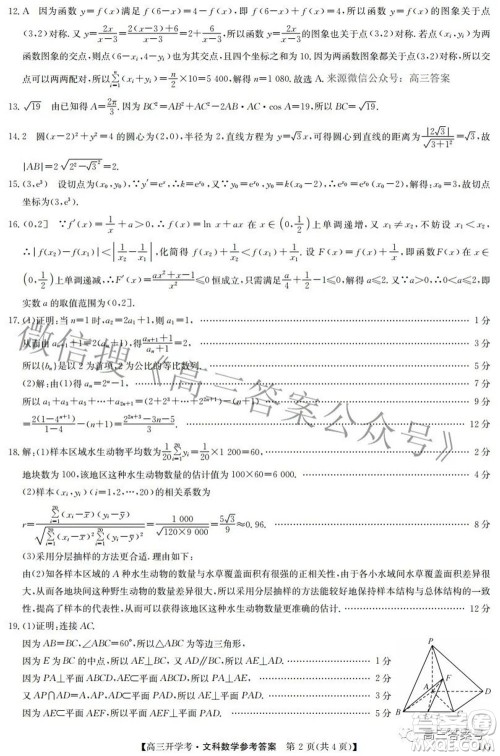 12. A 因为函数 y=f(x)满足 f(6-x)=4-f(x),即 f(6-x)+f(x)=4,所以函数 y=f(x)的图象关于点
(3,2)对称. 又 y=2x/(x-3)=(2(x-3)+6)/(x-3)=2+6/(x-3),所以函数 y=2x/(x-3)的图象也关于点(3,2)对称. 若点(xᵢ,yᵢ)为两
函数图象的交点,则点(6-xᵢ,4-yᵢ)也为其交点,且四个坐标之和为 10. 因为两函数图象都关于点(3,2)对称,所以交
点可以两两配对,所以∑(xᵢ+yᵢ)=n/2×10=5 400,解得 n=1 080. 故选 A. 来源微信公众号:高三答案
13. √19 由已知得 A=2π/3. 因为 BC²=AB²+AC²-2AB·AC·cos A=19,所以 BC=√19.
14. 2 圆(x-2)²+y²=4 的圆心为(2,0),半径为 2,直线方程为 y=√3x,可得圆心到直线的距离为|2√3|/√(3+1²)=√3,故
|AB|=2√(2²-√3²)=2.
15. (3,e³) 设切点为(x₀,y₀),∵y′=eˣ,∴k=e^x₀,∴y₀=e^x₀,y₀=k(x₀-2),∴e^x₀=e^x₀(x₀-2),解得:x₀=3,故切点
坐标为(3,e³).
16. (0,2] ∵f′(x)=1/x+a>0,∴f(x)=ln x+ax 在 x∈(0,1/2)上单调增,又 x₁≠x₂,不妨设 x₁<x₂,
∴|f(x₂)-f(x₁)|<|1/x₂-1/x₁|,化简得 f(x₂)+1/x₂<f(x₁)+1/x₁. 设 F(x)=f(x)+1/x,即函数F(x)在 x∈
(0,1/2)上单调递减,∴F′(x)=(ax²+x-1)/x²≤0 恒成立,只需满足a/4+1/2-1≤0,解得 a≤2. 又∵a>0,∴0<a≤2,即
实数 a 的取值范围为(0,2].
17. (1)证明:当 n=1 时,a₂=2a₁+1,则 a₁=1. 1 分
从而由 aₙ₊₁+1=2(aₙ+1),得(aₙ₊₁+1)/(aₙ+1)=2, 3 分
所以{bₙ}是以 2 为首项,2 为公比的等比数列. 5 分
(2)解:由(1)得 aₙ=2ⁿ-1, 7 分
9 分
12 分
18. 解:(1)样本区域水生动物平均数为1/20∑yᵢ=1/20×1 200=60, 2 分
地块数为 100,该地区这种水生动物数量的估计值为 100×60=6 000. 4 分
(2)样本(xᵢ,yᵢ)(i=1,2,…,20)的相关系数为
r=∑(xᵢ-x̄)(yᵢ-ȳ)/√(∑(xᵢ-x̄)²∑(yᵢ-ȳ)²)=1 000/√(120×9 000)=5√3/9≈0.96. 8 分
(3)采用分层抽样的方法更合适. 理由如下:
由(2)知各样本区域的 A 种水生动物的数量与水草覆盖面积有很强的正相关性,由于各小水域间水草覆盖面积差异
很大,从而各地块间这种野生动物的数量差异很大,所以采用分层抽样的方法能较好地保持样本结构与总体结构的一致
性,提高了样本的代表性,从而可以获得该水域这种水生动物数量更准确的估计. 12 分
19. (1)证明:连接 AC.
因为 AB=BC,∠ABC=60°,所以△ABC 为等边三角形,
因为 E 为 BC 的中点,所以 AE⊥BC,又 AD∥BC,所以 AE⊥AD. 1 分
因为 PA⊥平面 ABCD,AE⊂平面 ABCD,所以 PA⊥AE. 2 分
又 AP∩AD=A,AP,AD⊂平面 PAD,所以 AE⊥平面 PAD. 4 分
因为 AE⊂平面 AEF,所以平面 AEF⊥平面 PAD. 5 分
P
F
A
D
B
E
C
微信搜《高三答案公众号》
【高三开学考·文科数学参考答案 第 2 页(共 4 页)】
高三答案号